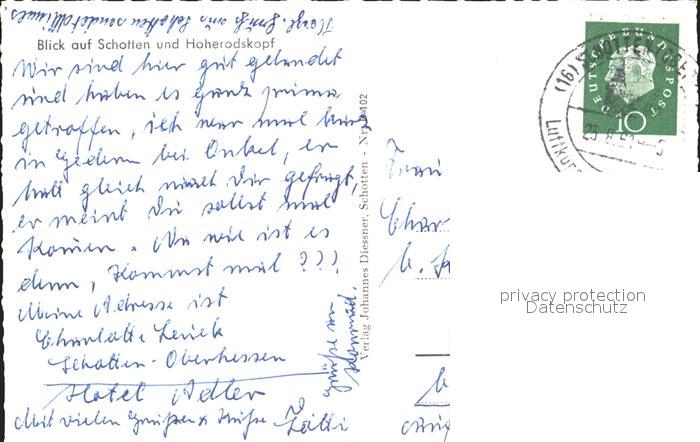 Herzl. Grüße aus Schotten sendet
Blick auf Schotten und Hoherodskopf
Wir sind hier gut gelandet
und haben es ganz prima
getroffen, ich war mal kurz
in Gedern bei Onkel, er
hat gleich nach Dir gefragt,
er meint Du sollst mal
kommen. Na wie ist es
denn, kommst mal ???
Meine Adresse ist
Charlotte
Schotten-Oberhessen
Hotel Adler
Mit vielen Grüßen & Küsse Lotti
Grüße an
Verlag Johannes Diessner, Schotten - Nr.
Frau
Char
DEUTSCHE BUNDESPOST
10
(16) SCHOTTEN
Luftkur
privacy protection
Datenschutz